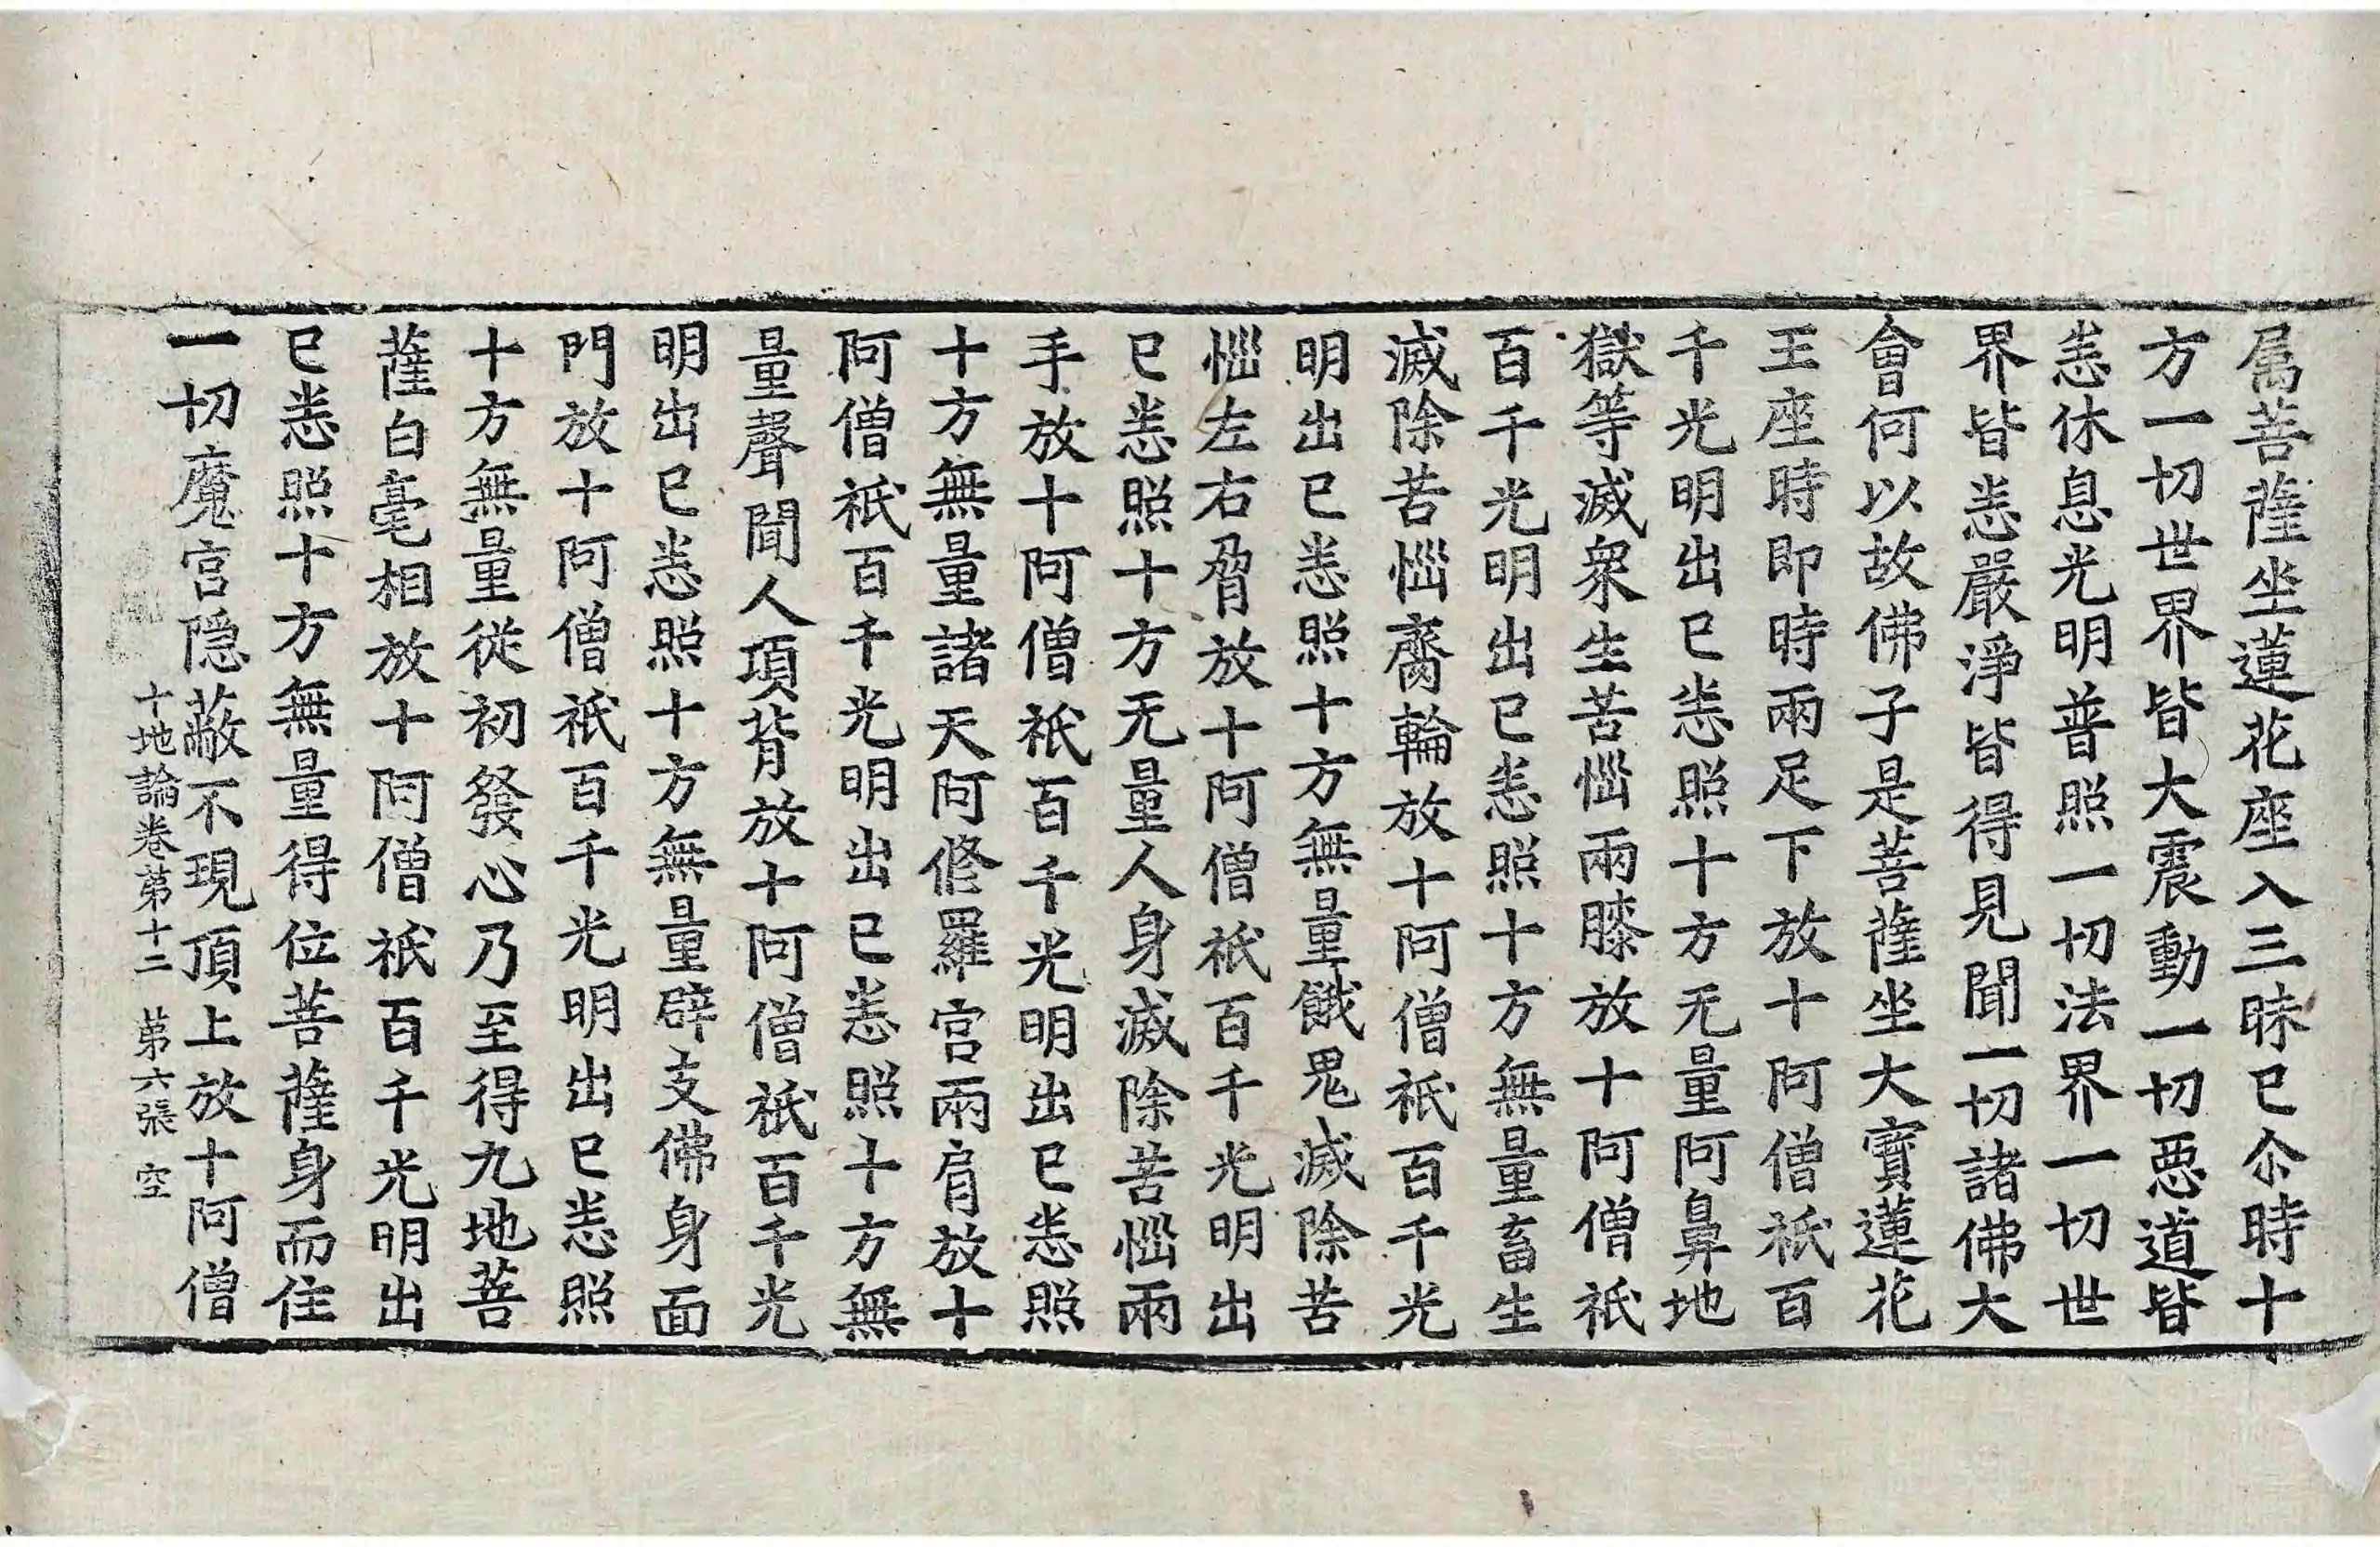 属菩薩坐蓮花座入三昧已尒時十
方一切世界皆大震動一切惡道皆
悉休息光明普照一切法界一切世
界皆悉嚴淨皆得見聞一切諸佛大
會何以故佛子是菩薩坐大寶蓮花
王座時即時兩足下放十阿僧祇百
千光明出已悉照十方无量阿鼻地
獄等滅衆生苦惱兩膝放十阿僧祇
百千光明出已悉照十方無量畜生
滅除苦惱齎輪放十阿僧祇百千光
明出已悉照十方無量餓鬼滅除苦
惱左右脅放十阿僧祇百千光明出
已悉照十方无量人身滅除苦惱兩
手放十阿僧祇百千光明出已悉照
十方無量諸天阿修羅宮兩肩放十
阿僧祇百千光明出已悉照十方無
量聲聞人項背放十阿僧祇百千光
明出已悉照十方無量辟支佛身面
門放十阿僧祇百千光明出已悉照
十方無量從初發心乃至得九地菩
薩白毫相放十阿僧祇百千光明出
已悉照十方無量得位菩薩身而住
一切魔宮隱蔽不現頂上放十阿僧
十地論卷第十二 第六張 空